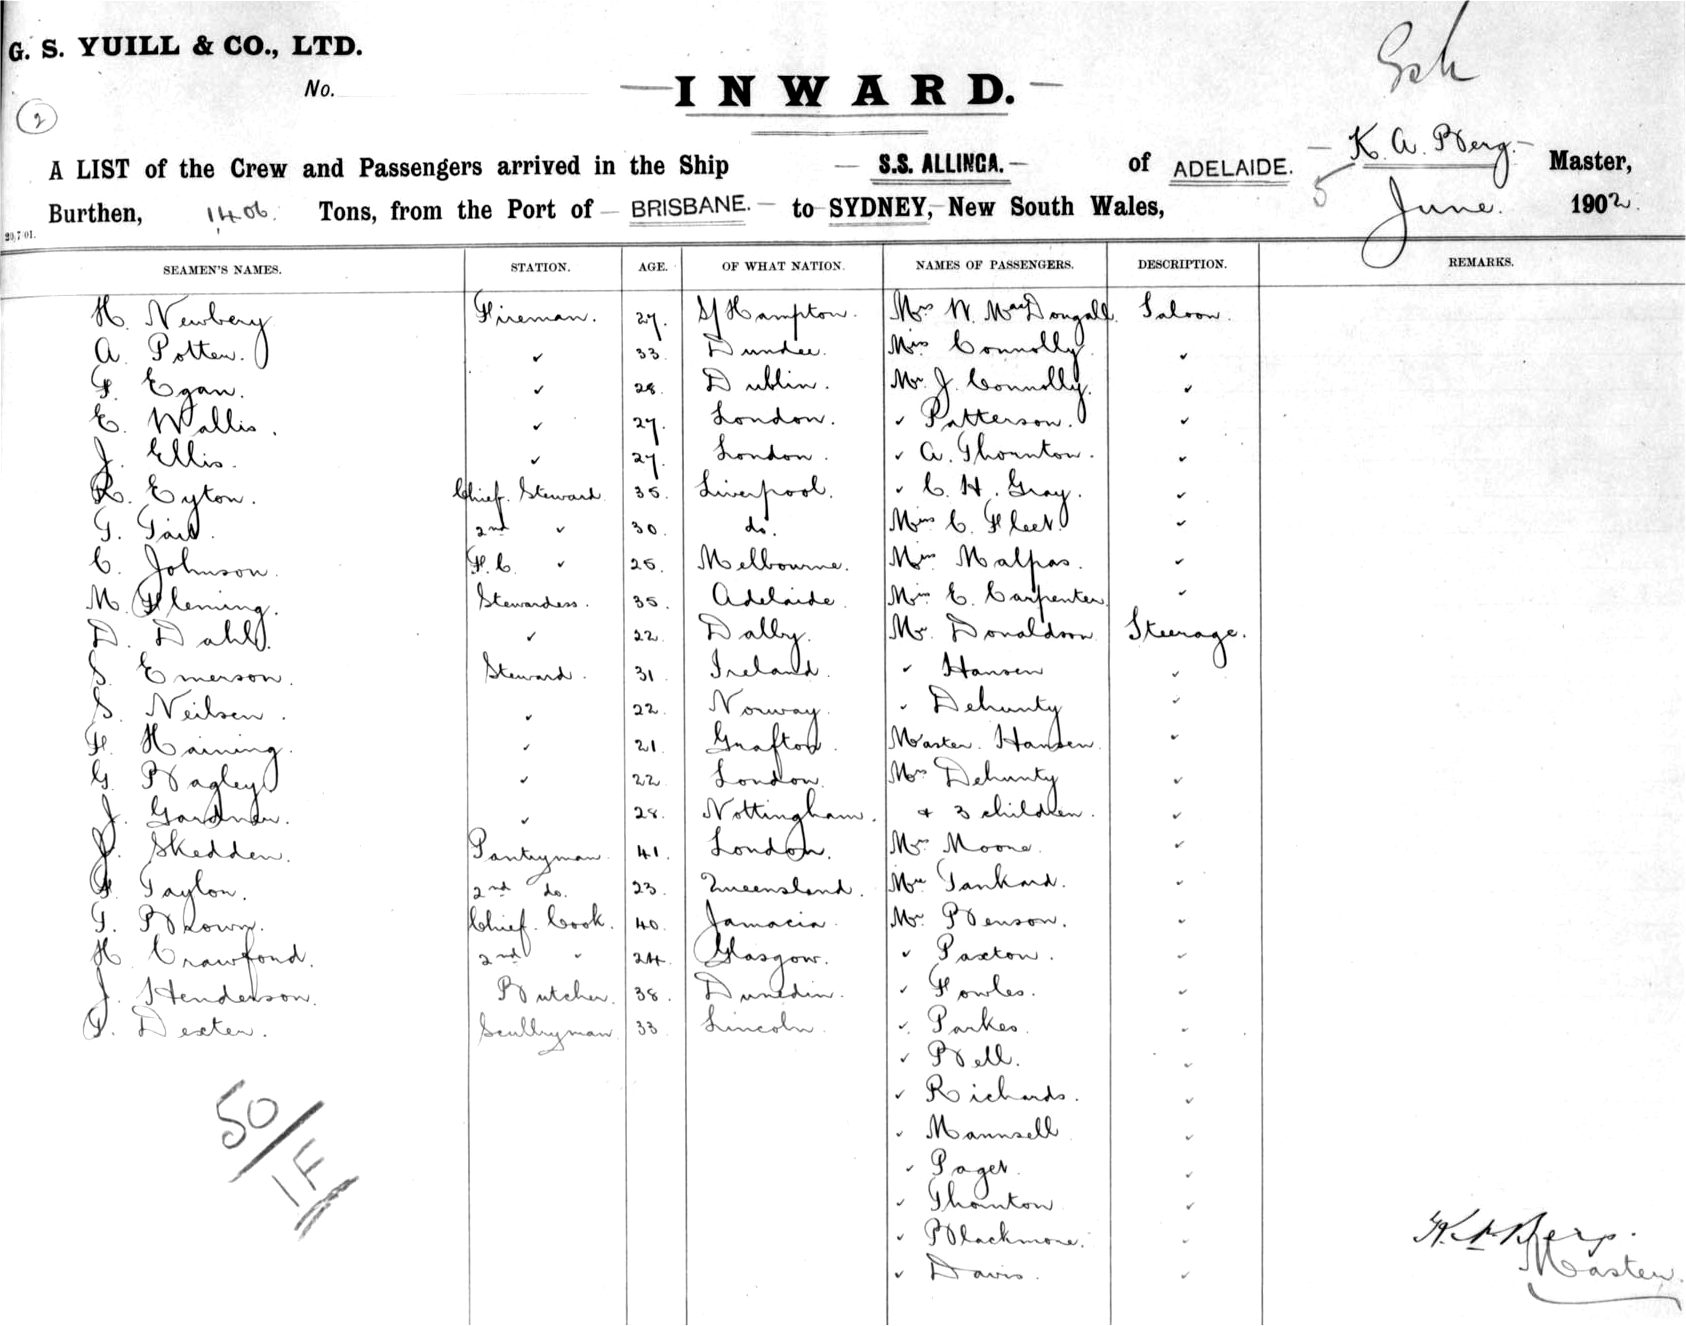 G. S. YUILL & CO., LTD.
No.
2
INWARD.
A LIST of the Crew and Passengers arrived in the Ship S.S. ALLINGA. of ADELAIDE. K. A. Berg. Master,
Burthen, 1406. Tons, from the Port of BRISBANE. to SYDNEY, New South Wales, 5 June. 1902.
20.7.01.
SEAMEN'S NAMES. STATION. AGE. OF WHAT NATION. NAMES OF PASSENGERS. DESCRIPTION. REMARKS.
H. Newbery Fireman. 27. S/Hampton. Mrs W. MacDougall. Saloon.
A. Potter. ✓ 33. Dundee. Mrs Connolly ✓
F. Egan. ✓ 28. Dublin. Mr J. Connolly. ✓
E. Wallis. ✓ 27. London. ✓ Patterson. ✓
J. Ellis. ✓ 27. London. ✓ A. Thornton. ✓
R. Eyton. Chief. Steward 35. Liverpool. ✓ C. H. Gray. ✓
T. Tait. 2nd ✓ 30. do. Miss C. Fleet. ✓
C. Johnson. F.C. ✓ 25. Melbourne. Miss Malpas. ✓
M. Fleming. Stewardess. 35. Adelaide. Miss E. Carpenter. ✓
D. Dahl. ✓ 22. Dalby. Mr. Donaldson Steerage.
S. Emerson. Steward. 31. Ireland. ✓ Hansen ✓
S. Neilsen. ✓ 22. Norway. ✓ Dehunty ✓
F. Haining. ✓ 21. Grafton. Master. Hansen. ✓
G. Bagley ✓ 22. London. Mrs Dehunty ✓
J. Gardner. ✓ 28. Nottingham. + 3 children. ✓
J. Skedden. Pantryman. 41. London. Mrs Moore. ✓
F. Taylor. 2nd do. 23. Queensland. Mrs Tankard. ✓
T. Brown. Chief. Cook. 40. Jamacia. Mr Benson. ✓
H. Crawford. 2nd ✓ 24. Glasgow. ✓ Paxton. ✓
J. Henderson. Butcher. 38. Dunedin. ✓ Fowles. ✓
T. Dexter. Scullryman 33 Lincoln. ✓ Parkes. ✓
✓ Bell. ✓
✓ Richards. ✓
✓ Mannsell ✓
✓ Paget. ✓
✓ Thornton ✓
✓ Blackmore. ✓
✓ Davis. ✓
50/1F
K. A. Berg.
Master.